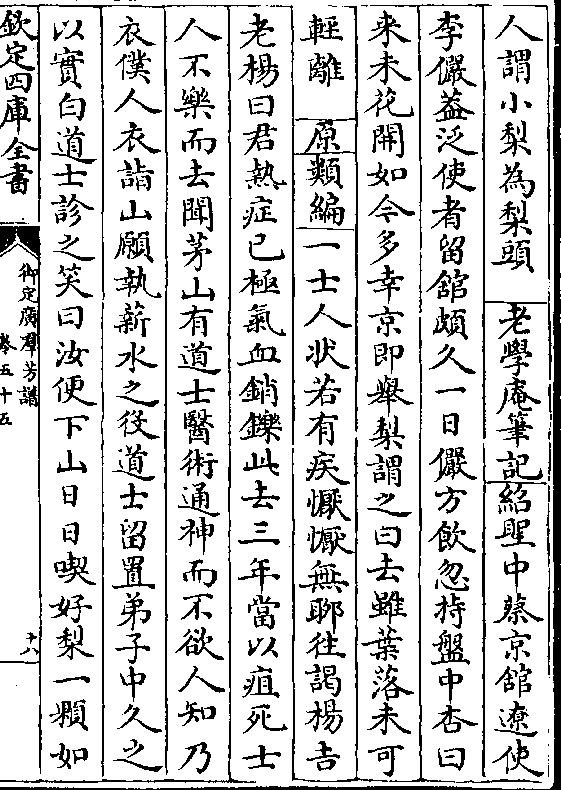 人謂小梨為梨頭　老學庵筆記紹聖中蔡京舘遼使
李儼葢泛使者留舘頗久一日儼方飲忽持盤中杏曰
来未花開如今多幸京即舉梨謂之曰去雖葉落未可
輕離　原類編一士人狀若有疾懨懨無聊徃謁楊吉
老楊曰君熱症已極氣血銷鑠此去三年當以疽死士
人不樂而去聞茅山有道士醫術通神而不欲人知乃
衣僕人衣詣山願執薪水之役道士留置弟子中久之
以實白道士診之笑曰汝便下山日日喫好梨一顆如
欽定四庫全書
御定廣羣芳譜
卷五十五
十八